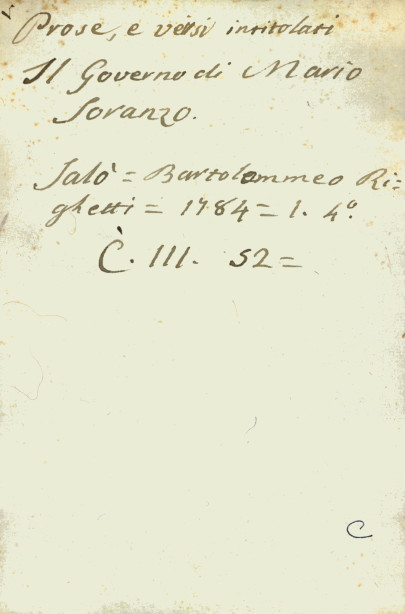 Prose, e versi intitolati
Il Governo di Mario
Soranzo.
Salò = Bartolommeo Ri=
ghetti = 1784 = 1. 4º.
C. III. 52 =
C